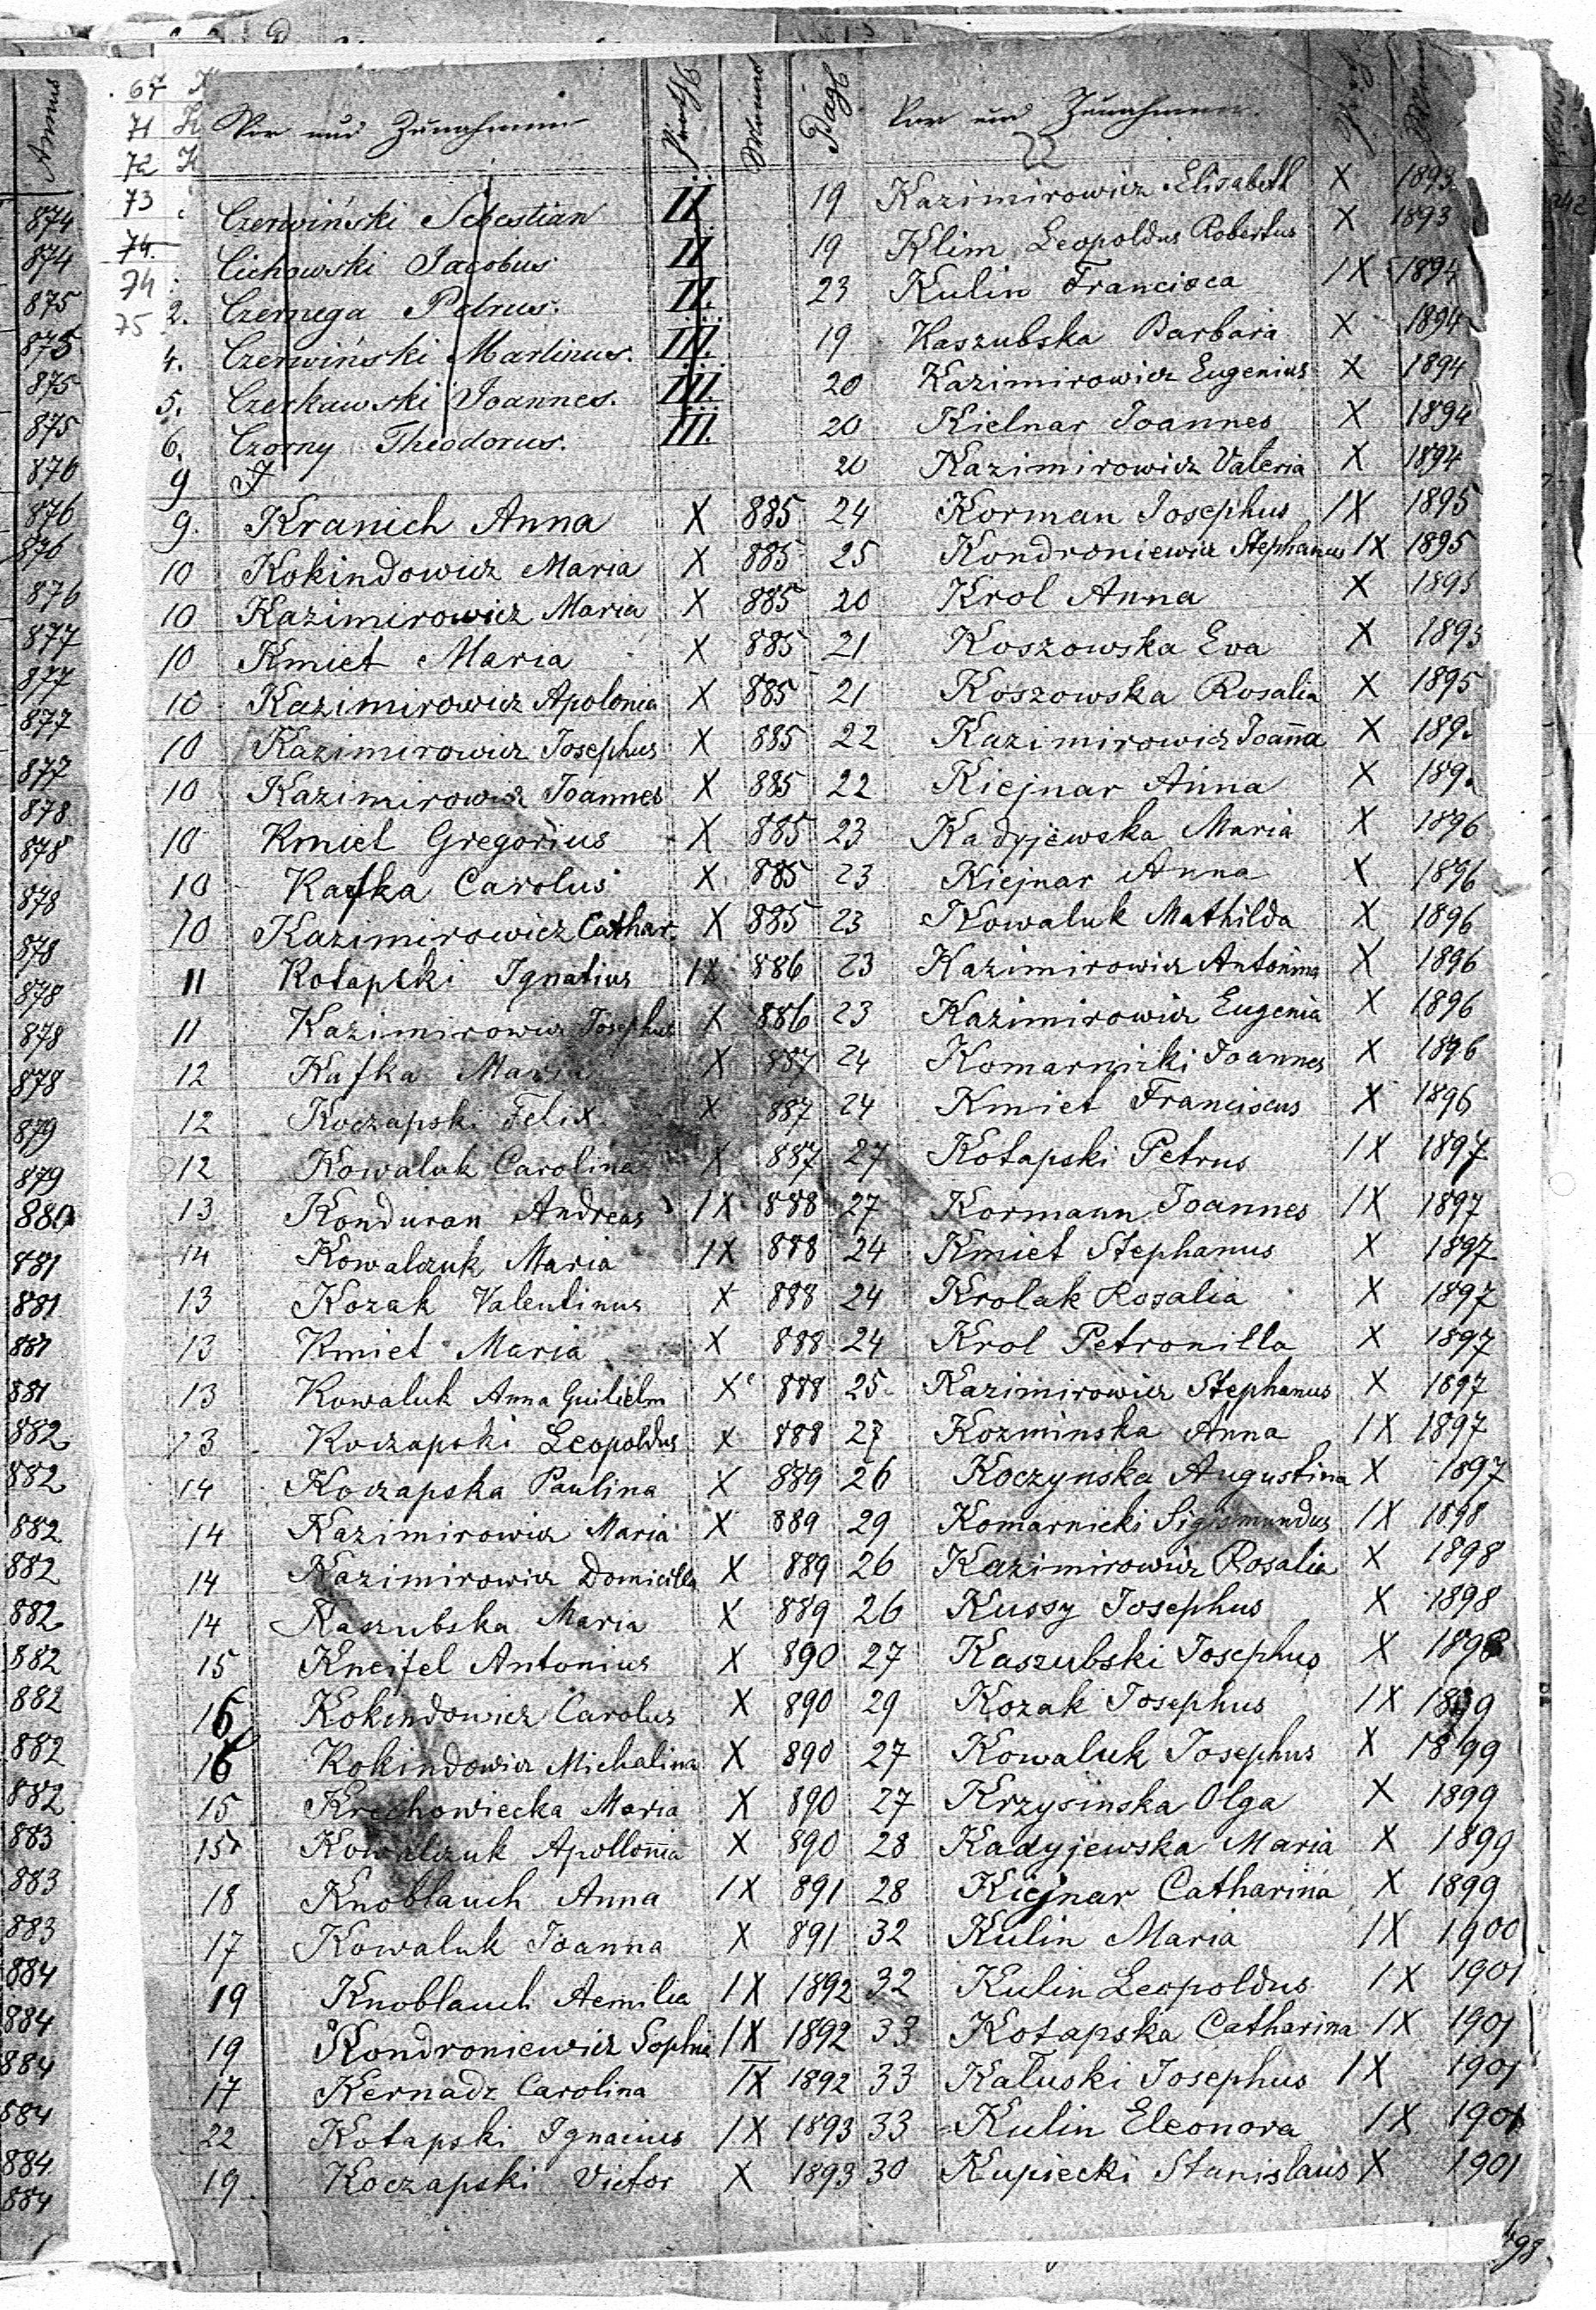 Vor und Zunahmen
Vor und Zunahmen
Annus
Pag
67
71
72
73
74
74
75
874
874
875
875
875
875
876
876
876
876
877
877
877
877
878
878
878
878
878
878
878
879
879
880
881
881
881
881
882
882
882
882
882
882
882
882
882
883
883
883
884
884
884
884
884
884
Czerwiński Sebestian II
Cichowski Jacobus II
2. Czernega Petrus. II.
4. Czerwiński Martinus. III.
5. Czerkawski Joannes. III.
6. Czorny Theodorus. III.
9
9. Kranich Anna X 885
10 Kokindowicz Maria X 885
10 Kazimirowicz Maria X 885
10 Kmiet Maria X 885
10 Kazimirowicz Apolonia X 885
10 Kazimirowicz Josephus X 885
10 Kazimirowicz Joannes X 885
10 Kmiet Gregorius X 885
10 Kafka Carolus X 885
10 Kazimirowicz Cathar. X 885
11 Kotapski Ignatius IX 886
11 Kazimirowicz Josephus X 886
12 Kafka Maria X 887
12 Koczapski Felix X 887
12 Kowaluk Carolina X 887
13 Konduran Andreas IX 888
14 Kowalczuk Maria IX 888
13 Kozak Valentinus X 888
13 Kmiet Maria X 888
13 Kowaluk Anna Guilielm X 888
13 Koczapski Leopoldus X 888
14 Koczapska Paulina X 889
14 Kazimirowicz Maria X 889
14 Kazimirowicz Domicilla X 889
14 Kaszubska Maria X 889
15 Kneifel Antonius X 890
16 Kokindowicz Carolus X 890
16 Kokindowicz Michalina X 890
15 Krechowiecka Maria X 890
15 Kowalczuk Apollonia X 890
18 Knoblauch Anna IX 891
17 Kowaluk Joanna X 891
19 Knoblauch Aemilia IX 1892
19 Kondroniewicz Sophia IX 1892
17 Kernadz Carolina IX 1892
22 Kotapski Ignacius IX 1893
19 Koczapski Victor X 1893
19 Kazimirowicz Elisabeth X 1893
19 Klim Leopoldus Robertus X 1893
23 Kulin Francisca IX 1894
19 Kaszubska Barbara X 1894
20 Kazimirowicz Eugenius X 1894
20 Kielnar Joannes X 1894
20 Kazimirowicz Valeria X 1894
24 Korman Josephus IX 1895
25 Kondroniewicz Stephanus IX 1895
20 Krol Anna X 1895
21 Koszowska Eva X 1895
21 Koszowska Rosalia X 1895
22 Kazimirowicz Joaña X 189
22 Kiejnar Anna X 189
23 Kadyjewska Maria X 1896
23 Kiejnar Anna X 1896
23 Kowaluk Mathilda X 1896
23 Kazimirowicz Antonina X 1896
23 Kazimirowicz Eugenia X 1896
24 Komarnicki Joannes X 1896
24 Kmiet Franciscus X 1896
27 Kotapski Petrus IX 1897
27 Kormann Joannes IX 1897
24 Kmiet Stephanus X 1897
24 Krolak Rosalia X 1897
24 Krol Petronilla X 1897
25 Kazimirowicz Stephanus X 1897
27 Kozminska Anna IX 1897
26 Koczynska Augustina X 1897
29 Komarnicki Sigismundus IX 1898
26 Kazimirowicz Rosalia X 1898
26 Kussy Josephus X 1898
27 Kaszubski Josephus X 1898
29 Kozak Josephus IX 1899
27 Kowaluk Josephus X 1899
27 Krzysinska Olga X 1899
28 Kadyjewska Maria X 1899
28 Kiejnar Catharina X 1899
32 Kulin Maria IX 1900
32 Kulin Leopoldus IX 1901
33 Kotapska Catharina IX 1901
33 Kałuski Josephus IX 1901
33 Kulin Eleonora IX 1901
30 Kupiecki Stanislaus X 1901